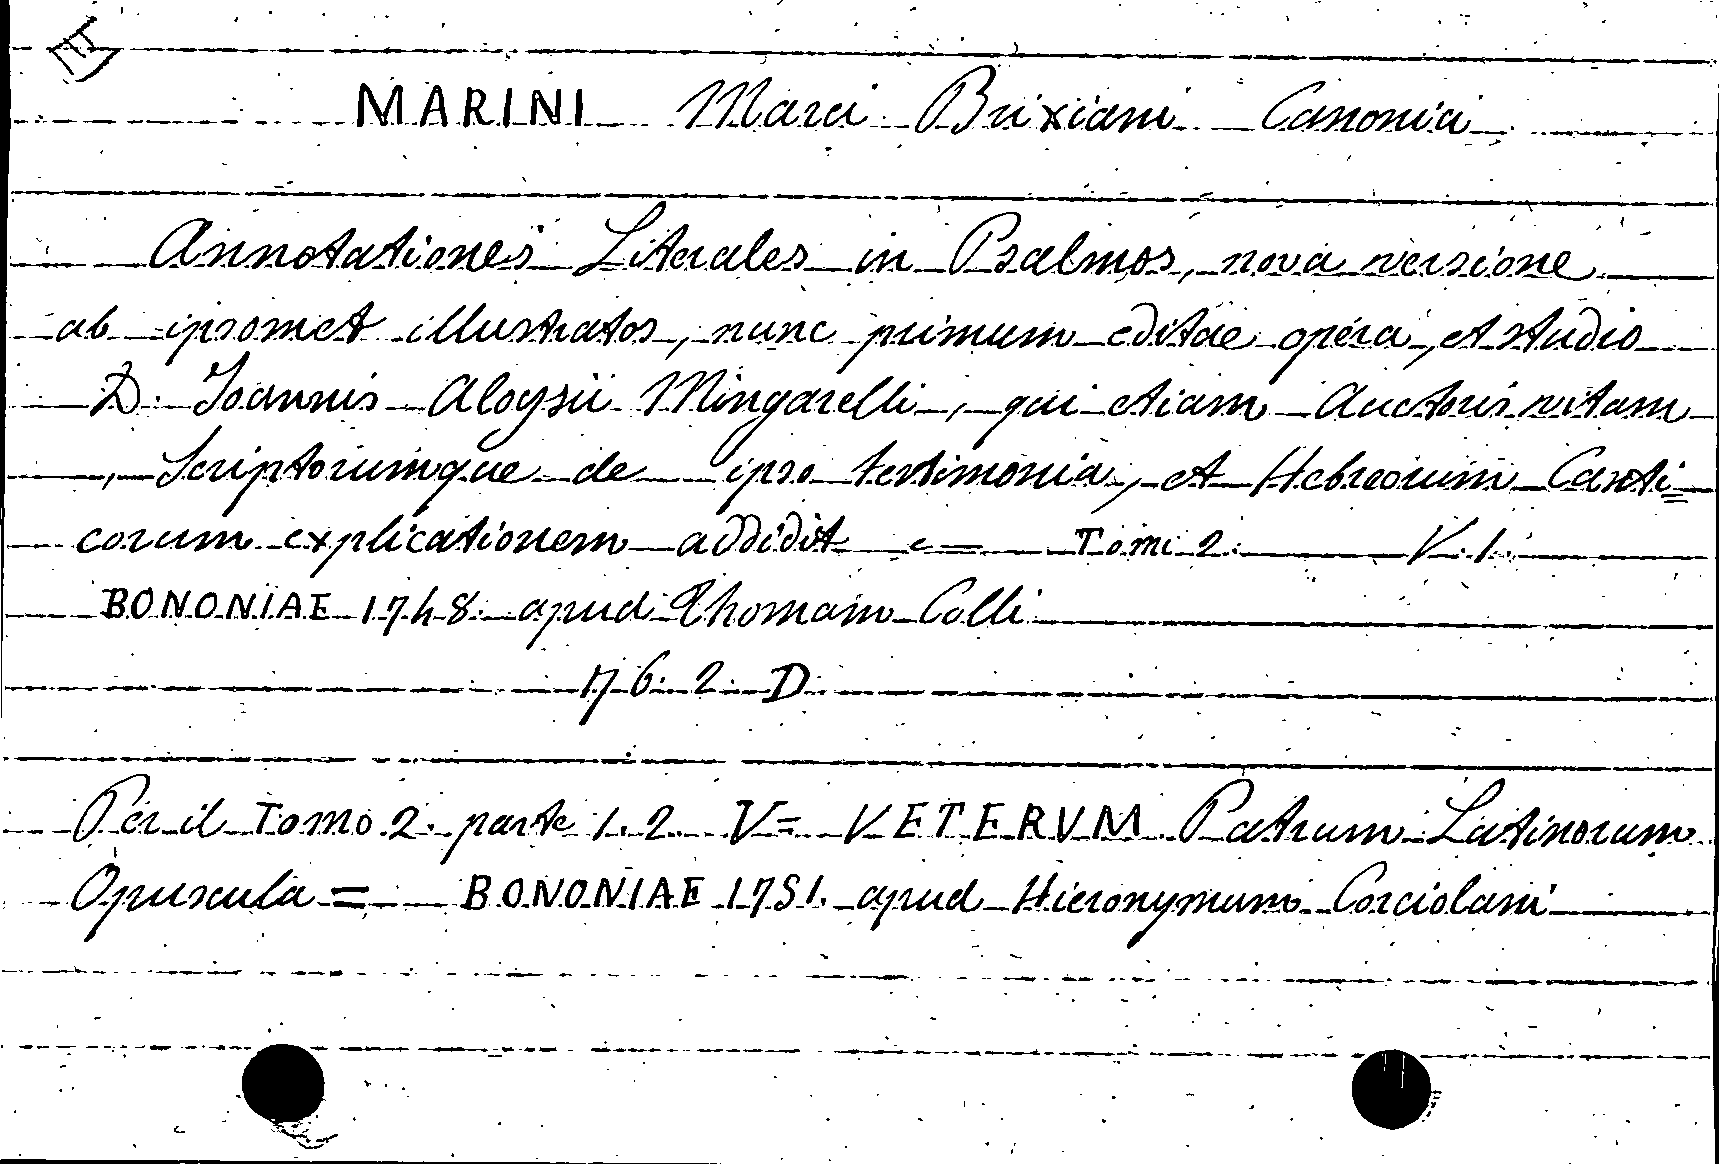 MARINI Marci Brixiani Canonici
Annotationes Literales in Psalmos, nova versione
ab ipsomet illustratos, nunc primum editae opera, et studio
D. Joannis Aloysii Mingarelli, qui etiam Auctoris vitam
, Scriptorumque de ipso testimonia, et Hebreorum Canti=
corum explicationem addidit — Tomi 2. V. 1.
BONONIAE 1748. apud Thomam Colli
176. 2. D.
Per il Tomo 2. parte 1. 2. V= VETERVM Patrum Latinorum
Opuscula = BONONIAE 1751. apud Hieronymum Corciolani